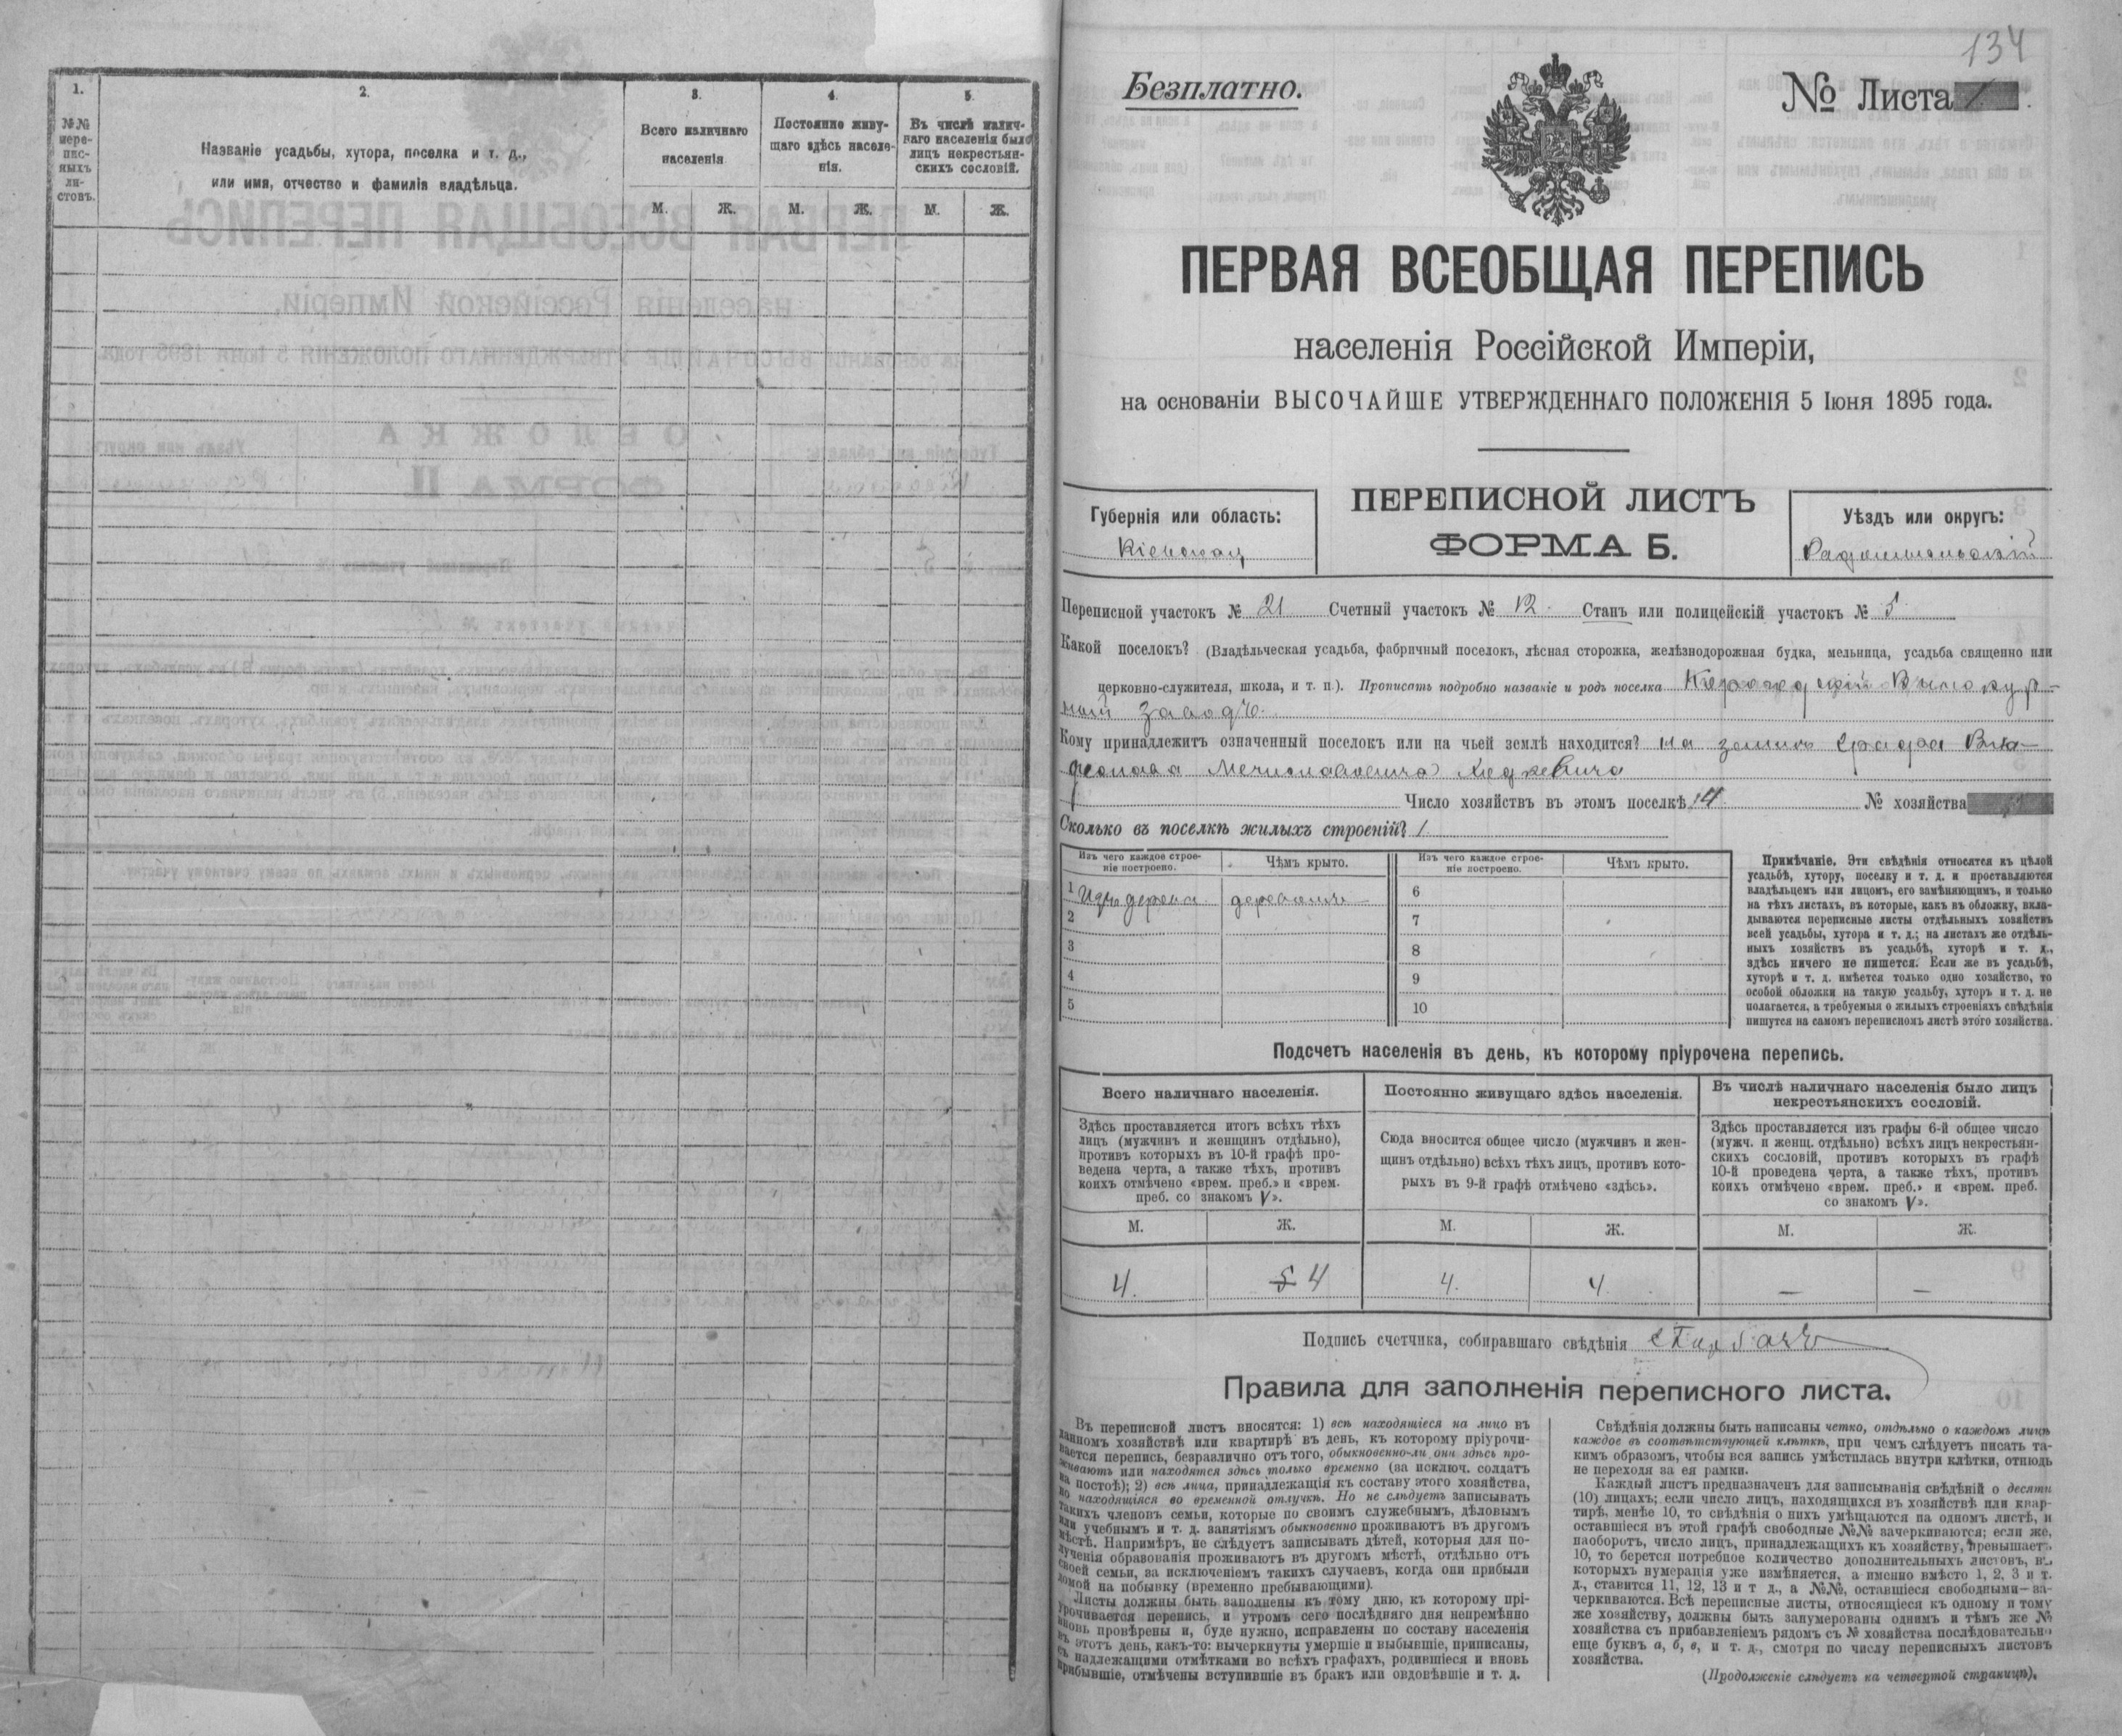 1.
2.
3.
4.
5.
№№
пере-
пис-
ныхъ
ли-
стовъ.
Названіе усадьбы, хутора, поселка и т. д.,
или имя, отчество и фамилія владѣльца.
Всего наличнаго
населенія
Постоянно живу-
щаго здѣсь населе-
нія.
Въ числѣ налич-
наго населенія было
лицъ некрестьян-
скихъ сословій.
М. Ж. М. Ж. М. Ж.
134
Безплатно.
№ Листа 1
ПЕРВАЯ ВСЕОБЩАЯ ПЕРЕПИСЬ
населенія Россійской Имперіи,
на основаніи ВЫСОЧАЙШЕ УТВЕРЖДЕННАГО ПОЛОЖЕНІЯ 5 Іюня 1895 года.
Губернія или область:
Кіевская
ПЕРЕПИСНОЙ ЛИСТЪ
ФОРМА Б.
Уѣздъ или округъ:
Радомысльскій
Переписной участокъ № 21 Счетный участокъ № 12. Станъ или полицейскій участокъ № 5
Какой поселокъ? (Владѣльческая усадьба, фабричный поселокъ, лѣсная сторожка, желѣзнодорожная будка, мельница, усадьба священно или
церковно-служителя, школа, и т. п.). Прописать подробно названіе и родъ поселка Винокур-
ный заводъ.
Кому принадлежитъ означенный поселокъ или на чьей землѣ находится? на землѣ графа Вла-
Мечиславовича Ходкевича
Число хозяйствъ въ этомъ поселкѣ 14. № хозяйства
Сколько въ поселкѣ жилыхъ строеній? 1
Изъ чего каждое строе-
ніе построено.
Чѣмъ крыто.
Изъ чего каждое строе-
ніе построено.
Чѣмъ крыто.
1 Изъ дерева деревомъ
2
3
4
5
6
7
8
9
10
Примѣчаніе. Эти свѣдѣнія относятся къ цѣлой
усадьбѣ, хутору, поселку и т. д. и проставляются
владѣльцемъ или лицомъ, его замѣняющимъ, и только
на тѣхъ листахъ, въ которые, какъ въ обложку, вкла-
дываются переписные листы отдѣльныхъ хозяйствъ
всей усадьбы, хутора и т. д.; на листахъ же отдѣль-
ныхъ хозяйствъ въ усадьбѣ, хуторѣ и т. д.,
здѣсь ничего не пишется. Если же въ усадьбѣ,
хуторѣ и т. д. имѣется только одно хозяйство, то
особой обложки на такую усадьбу, хуторъ и т. д. не
полагается, а требуемыя о жилыхъ строеніяхъ свѣдѣнія
пишутся на самомъ переписномъ листѣ этого хозяйства.
Подсчетъ населенія въ день, къ которому пріурочена перепись.
Всего наличнаго населенія.
Здѣсь проставляется итогъ всѣхъ тѣхъ
лицъ (мужчинъ и женщинъ отдѣльно),
противъ которыхъ въ 10-й графѣ про-
ведена черта, а также тѣхъ, противъ
коихъ отмѣчено «врем. преб.» и «врем.
преб. со знакомъ V».
Постоянно живущаго здѣсь населенія.
Сюда вносится общее число (мужчинъ и жен-
щинъ отдѣльно) всѣхъ тѣхъ лицъ, противъ кото-
рыхъ въ 9-й графѣ отмѣчено «здѣсь».
Въ числѣ наличнаго населенія было лицъ
некрестьянскихъ сословій.
Здѣсь проставляется изъ графы 6-й общее число
(мужч. и женщ. отдѣльно) всѣхъ лицъ некрестьян-
скихъ сословій, противъ которыхъ въ графѣ
10-й проведена черта, а также тѣхъ, противъ
коихъ отмѣчено «врем. преб.» и «врем. преб.
со знакомъ V».
М. Ж. М. Ж. М. Ж.
4. 5 4 4. 4 — —
Подпись счетчика, собиравшаго свѣдѣнія
Правила для заполненія переписного листа.
Въ переписной листъ вносятся: 1) всѣ находящіеся на лицо въ
данномъ хозяйствѣ или квартирѣ въ день, къ которому пріурочи-
вается перепись, безразлично отъ того, обыкновенно-ли они здѣсь про-
живаютъ или находятся здѣсь только временно (за исключ. солдатъ
на постоѣ); 2) всѣ лица, принадлежащія къ составу этого хозяйства,
но находящіяся во временной отлучкѣ. Но не слѣдуетъ записывать
такихъ членовъ семьи, которые по своимъ служебнымъ, дѣловымъ
или учебнымъ и т. д. занятіямъ обыкновенно проживаютъ въ другомъ
мѣстѣ. Напримѣръ, не слѣдуетъ записывать дѣтей, которыя для по-
лученія образованія проживаютъ въ другомъ мѣстѣ, отдѣльно отъ
своей семьи, за исключеніемъ такихъ случаевъ, когда они прибыли
домой на побывку (временно пребывающими).
Листы должны быть заполнены къ тому дню, къ которому прі-
урочивается перепись, и утромъ сего послѣдняго дня непремѣнно
вновь провѣрены и, буде нужно, исправлены по составу населенія
въ этотъ день, какъ-то: вычеркнуты умершіе и выбывшіе, приписаны,
съ надлежащими отмѣтками во всѣхъ графахъ, родившіеся и вновь
прибывшіе, отмѣчены вступившіе въ бракъ или овдовѣвшіе и т. д.
Свѣдѣнія должны быть написаны четко, отдѣльно о каждомъ лицѣ
каждое въ соотвѣтствующей клѣткѣ, при чемъ слѣдуетъ писать та-
кимъ образомъ, чтобы вся запись умѣстилась внутри клѣтки, отнюдь
не переходя за ея рамки.
Каждый листъ предназначенъ для записыванія свѣдѣній о десяти
(10) лицахъ; если число лицъ, находящихся въ хозяйствѣ или квар-
тирѣ, менѣе 10, то свѣдѣнія о нихъ умѣщаются на одномъ листѣ, и
оставшіеся въ этой графѣ свободные №№ зачеркиваются; если же,
наоборотъ, число лицъ, принадлежащихъ къ хозяйству, превышаетъ
10, то берется потребное количество дополнительныхъ листовъ, въ
которыхъ нумерація уже измѣняется, а именно вмѣсто 1, 2, 3 и т.
д., ставится 11, 12, 13 и т д., а №№, оставшіеся свободными—за-
черкиваются. Всѣ переписные листы, относящіеся къ одному и тому
же хозяйству, должны быть занумерованы однимъ и тѣмъ же №
хозяйства съ прибавленіемъ рядомъ съ № хозяйства послѣдовательно
еще буквъ а, б, в, и т. д., смотря по числу переписныхъ листовъ
хозяйства.
(Продолженіе слѣдуетъ на четвертой страницѣ).